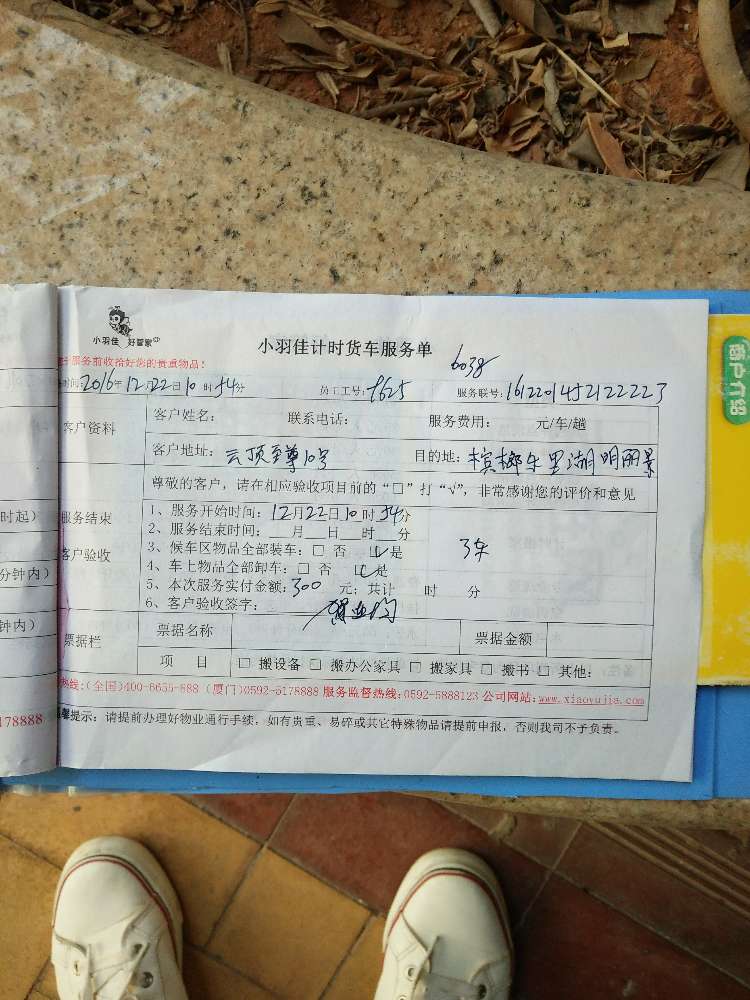 小羽佳 好管家
小羽佳计时货车服务单
6038
服务前收拾好您的贵重物品!
时间:2016年12月22日10时54分 员工工号: 服务联号:161220145212223
客户资料
客户姓名: 联系电话: 服务费用: 元/车/趟
客户地址:云顶至尊10号 目的地:槟榔东里湖明丽景
尊敬的客户,请在相应验收项目前的“□”打“√”,非常感谢您的评价和意见
服务结束
客户验收
1、服务开始时间:12月22日10时54分
2、服务结束时间: 月 日 时 分
3、候车区物品全部装车:□ 否 ☑是
3车
4、车上物品全部卸车:□ 否 ☑是
5、本次服务实付金额:300 元;共计 时 分
6、客户验收签字:
票据栏
票据名称 票据金额
项 目 □ 搬设备 □ 搬办公家具 □ 搬家具 □ 搬书 □ 其他:
热线:(全国)400-6655-888 (厦门)0592-5178888 服务监督热线:0592-5888123 公司网站:www.xiaoyujia.com
温馨提示:请提前办理好物业通行手续,如有贵重、易碎或其它特殊物品请提前申报,否则我司不予负责。
时起)
分钟内)
钟内)
178888
商户介绍